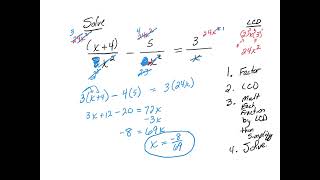 Solve
LCD
24x²
(x+4) - 5 = 3
x² x² x
3(x+4) - 4(5) = 3(24x)
3x+12-20 = 72x
-3x
-8 = 69x
x = -8/69
1. Factor
2. LCD
3. Mult
Each
Fraction
by LCD
then
Simplify
4. Solve